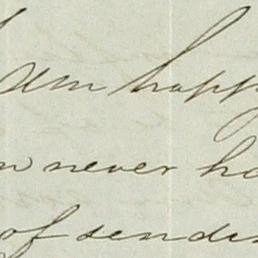 am happy
never
of sendin